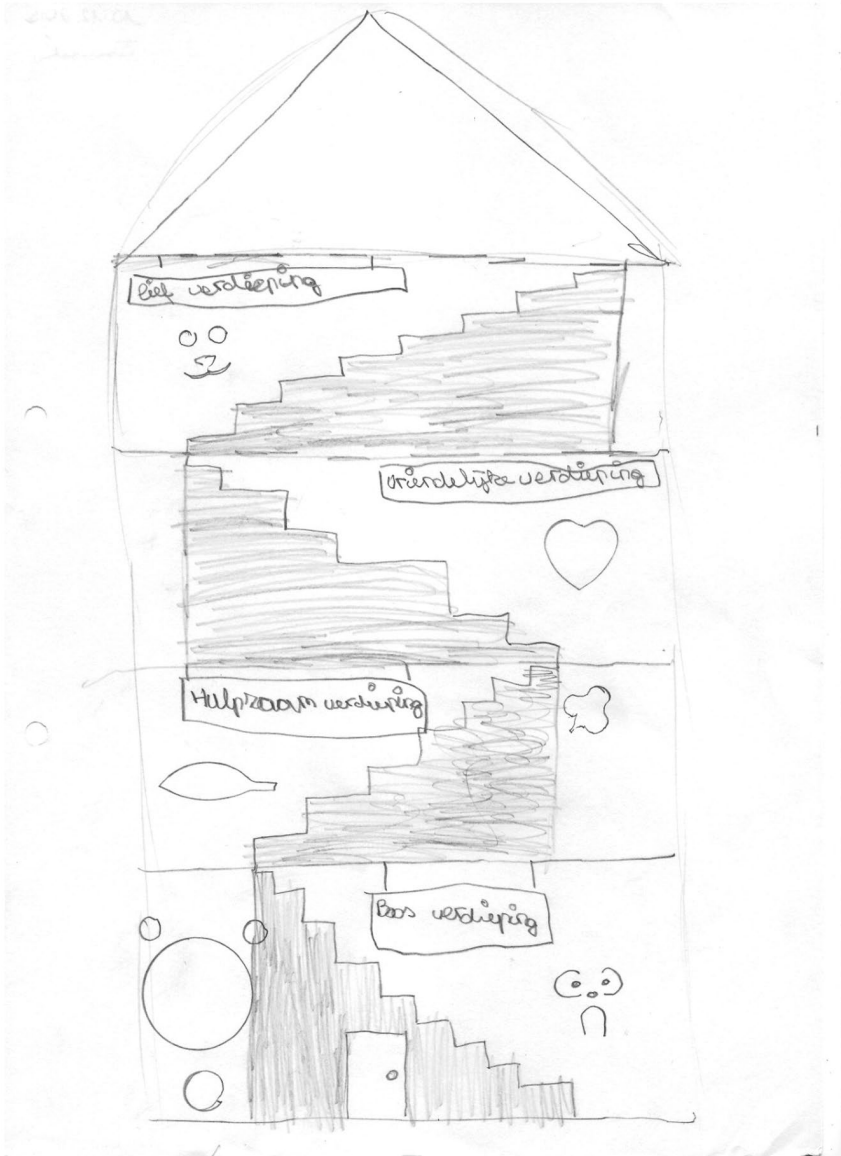 lief verdieping
vriendelijke verdieping
Hulpzaam verdieping
Boos verdieping